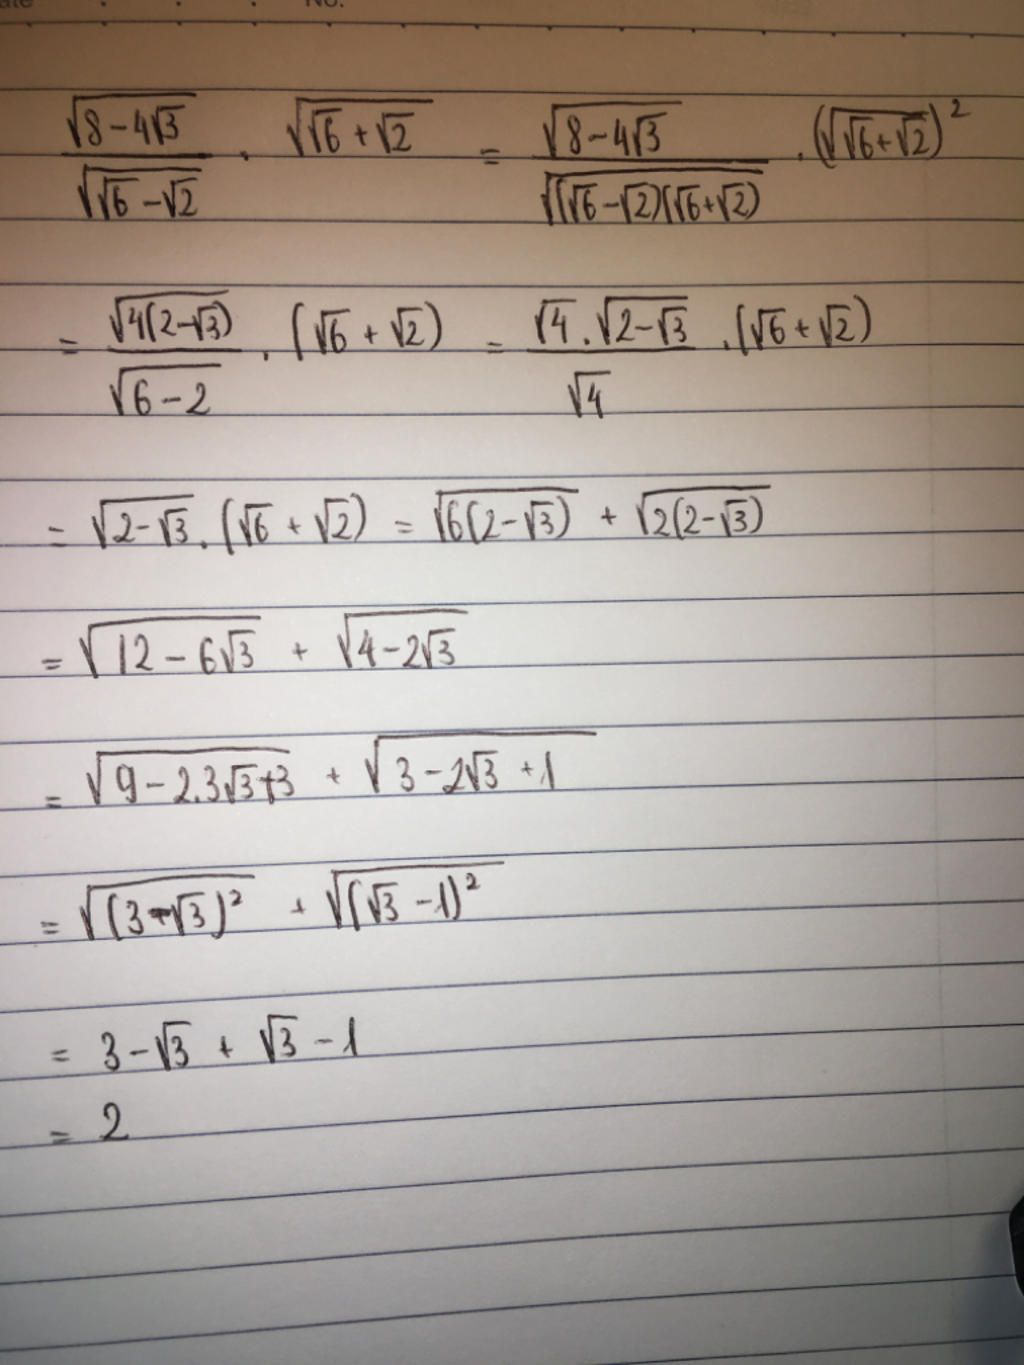 No.
√(8-4√3) / √(√6-√2) . √(√6+√2) = √(8-4√3) / √((√6-√2)(√6+√2)) . (√(√6+√2))²
= √(4(2-√3)) / √(6-2) . (√6+√2) = √4.√(2-√3) / √4 .(√6+√2)
= √(2-√3).(√6+√2) = √(6(2-√3)) + √(2(2-√3))
= √(12-6√3) + √(4-2√3)
= √(9-2.3√3+3) + √(3-2√3+1)
= √((3-√3)²) + √((√3-1)²)
= 3-√3 + √3-1
= 2